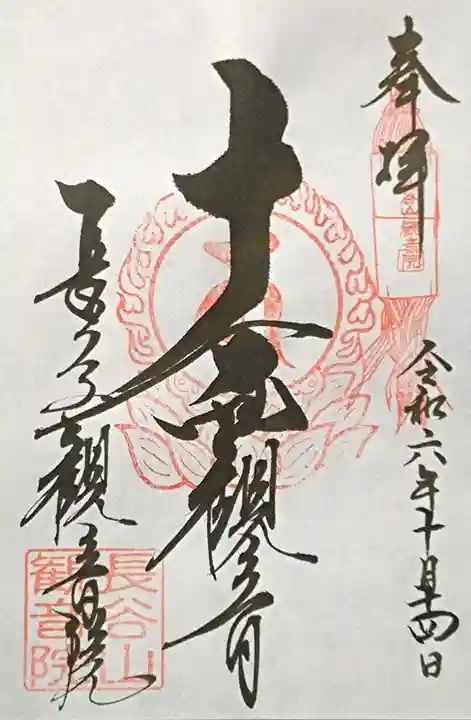 奉拝
令和六年十月十四日
十一面観音
長谷山観音院
長谷山
観音院